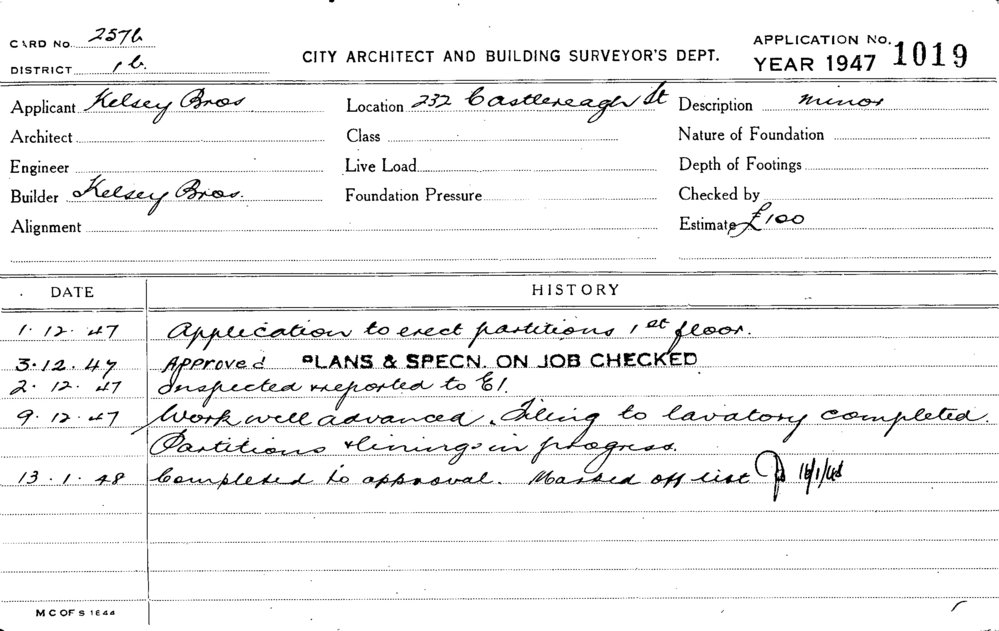 CARD No. 2576
DISTRICT 1b.
CITY ARCHITECT AND BUILDING SURVEYOR'S DEPT.
APPLICATION No. 1019
YEAR 1947
Applicant Kelsey Bros Location 232 Castlereagh St Description minor
Architect Class Nature of Foundation
Engineer Live Load Depth of Footings
Builder Kelsey Bros. Foundation Pressure Checked by
Alignment Estimate £100
DATE HISTORY
1.12.47 Application to erect partitions 1st floor.
3.12.47 Approved PLANS & SPECN. ON JOB CHECKED
2.12.47 Inspected & reported to E1.
9.12.47 Work well advanced. Tiling to lavatory completed.
Partitions & linings in progress.
13.1.48 Completed to approval. Marked off list 16/1/48
M C OF S 1844